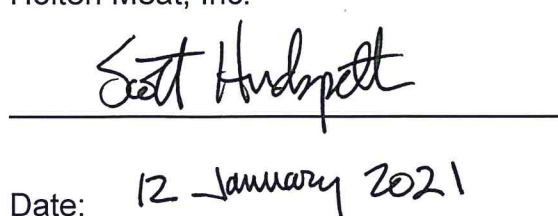 Holton Meat, Inc.
Scott Hudspeth
Date: 12 January 2021